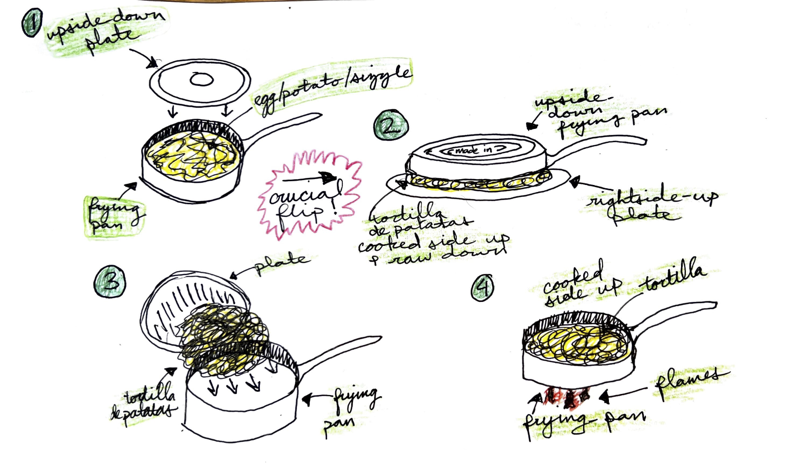 1
upside-down
plate
egg/potato/sizzle
frying
pan
crucial
flip!
2
upside-
down
frying pan
made in
rightside-up
plate
tortilla
de patatas
cooked side up
& raw down
3
plate
tortilla
de patatas
frying
pan
4
cooked
side up
tortilla
flames
frying pan